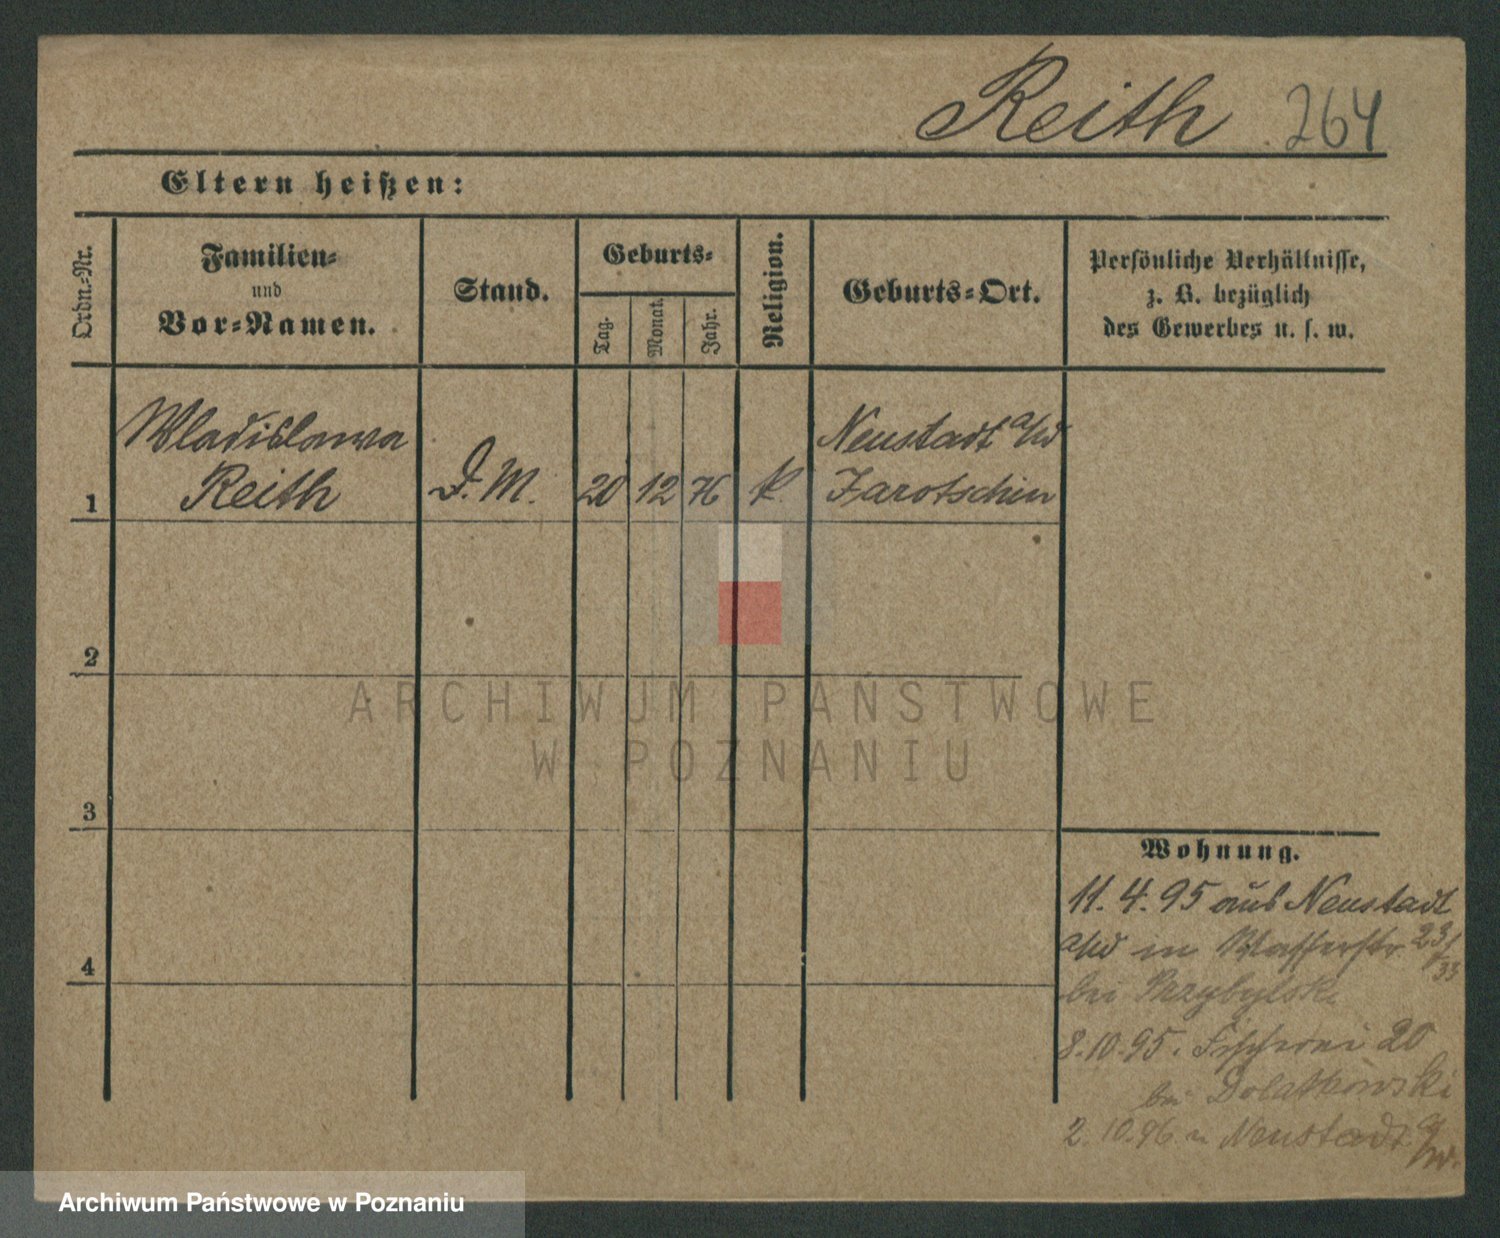 Reith 264
Eltern heißen:
Ordn.-Nr.
Familien-
und
Vor-Namen.
Stand.
Geburts-
Tag.
Monat.
Jahr.
Religion.
Geburts-Ort.
Persönliche Verhältnisse,
z. B. bezüglich
des Gewerbes u. s. w.
Wladislawa
Reith
D. M.
20
12
76
k.
Neustadt a/W
Jarotschin
1
2
3
4
ARCHIWUM PAŃSTWOWE
W POZNANIU
Wohnung.
11. 4. 95 aus Neustadt
a/W in Wasserstr. 23/
33
bei Przybylski
8. 10. 95. Fischerei 20
bei Dolatkowski
2. 10. 96 n Neustadt a/
W.
Archiwum Państwowe w Poznaniu